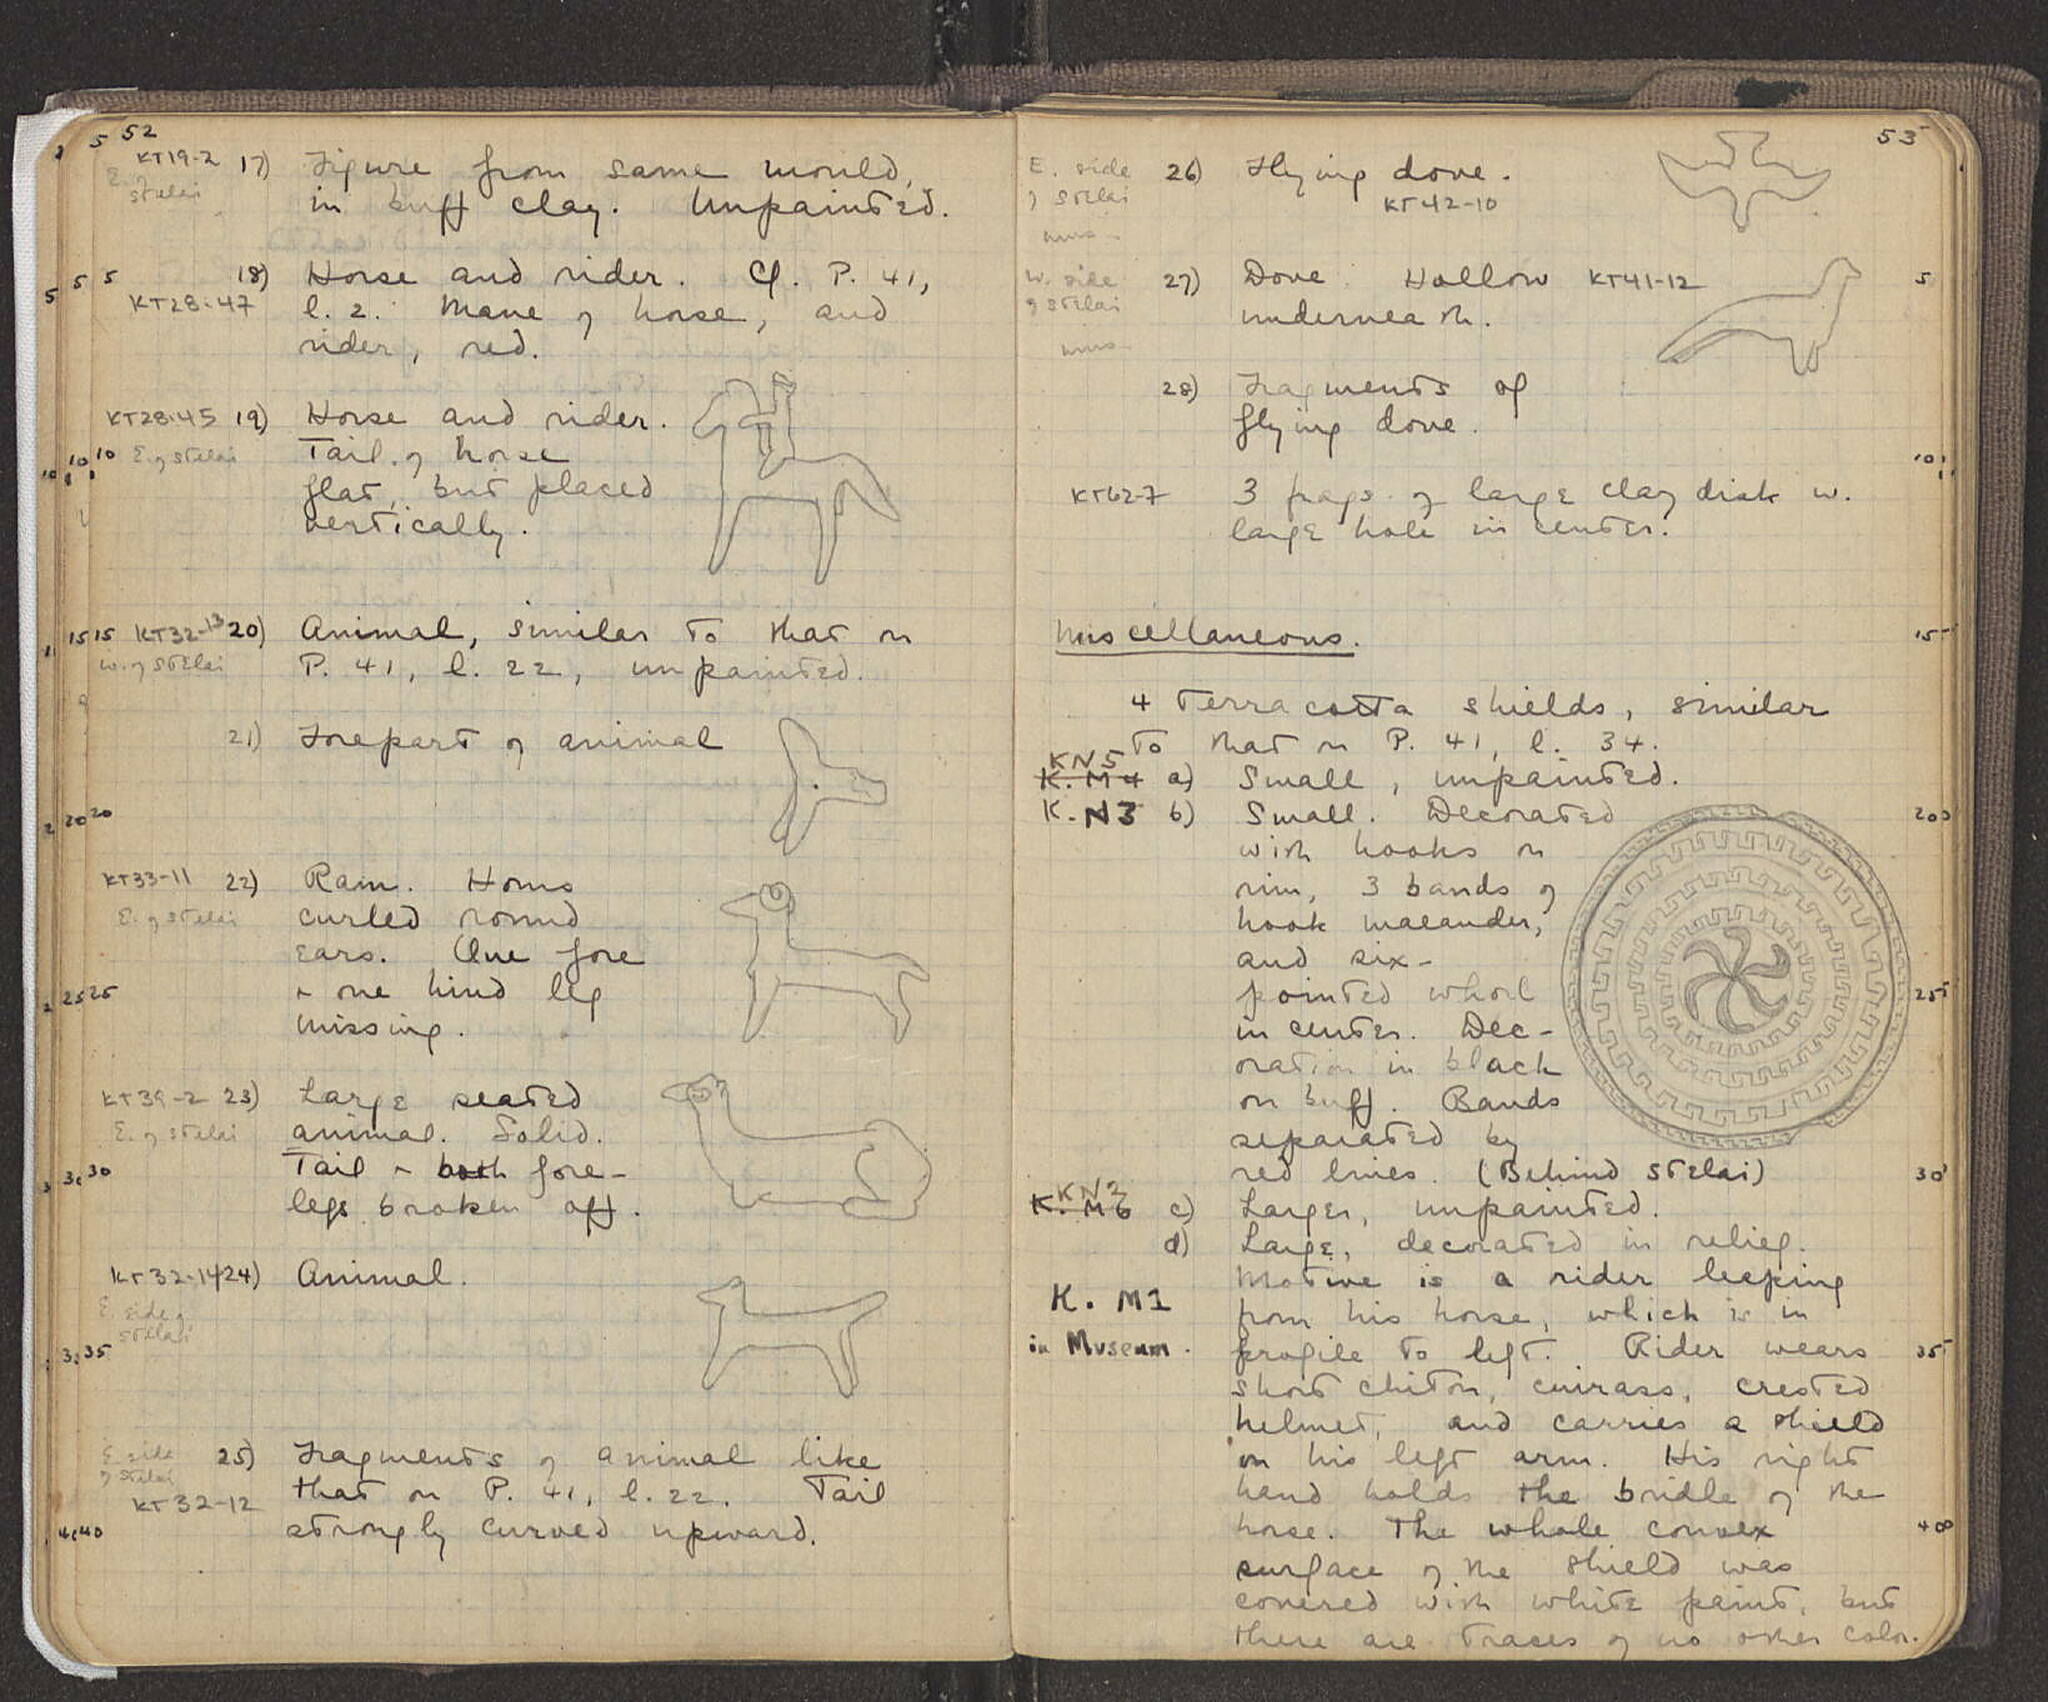 52
KT19-2 17) Figure from same mould,
E. of stelai
in buff clay. Unpainted.
5 18) Horse and rider. Cf. P. 41,
KT28-47 l. 2. Mane of horse, and
rider, red.
KT28-45 19) Horse and rider.
10 E. of stelai Tail of horse
flat, but placed
vertically.
15 KT32-13 20) Animal, similar to that on
W. of stelai P. 41, l. 22, unpainted.
21) Forepart of animal
20
KT33-11 22) Ram. Horns
E. of stelai curled round
ears. One fore
25 + one hind leg
missing.
KT39-2 23) Large seated
E. of stelai animal. Solid.
30 Tail + both fore-
legs broken off.
KT32-14 24) Animal.
E. side of
stelai
35
E. side 25) Fragments of animal like
of stelai
KT32-12 that on P. 41, l. 22. Tail
40 strongly curved upward.
53
E. side 26) Flying dove.
of stelai KT42-10
W. side 27) Dove. Hollow KT41-12 5
of stelai underneath.
28) Fragments of
flying dove.
10
KT62-7 3 frags. of large clay disk w.
large hole in center.
Miscellaneous. 15
4 Terracotta shields, similar
to that on P. 41, l. 34.
KN5
K. M4 a) Small, unpainted.
K. N3 b) Small. Decorated 20
with hooks on
rim, 3 bands of
hook maeander,
and six-
pointed whorl 25
in center. Dec-
oration in black
on buff. Bands
separated by
red lines. (Behind stelai) 30
KN2
K. M6 c) Larger, unpainted.
d) Large, decorated in relief.
Motive is a rider leaping
K. M1 from his horse, which is in
in Museum. profile to left. Rider wears 35
short chiton, cuirass, crested
helmet, and carries a shield
on his left arm. His right
hand holds the bridle of the
horse. The whole convex 40
surface of the shield was
covered with white paint, but
there are traces of no other color.